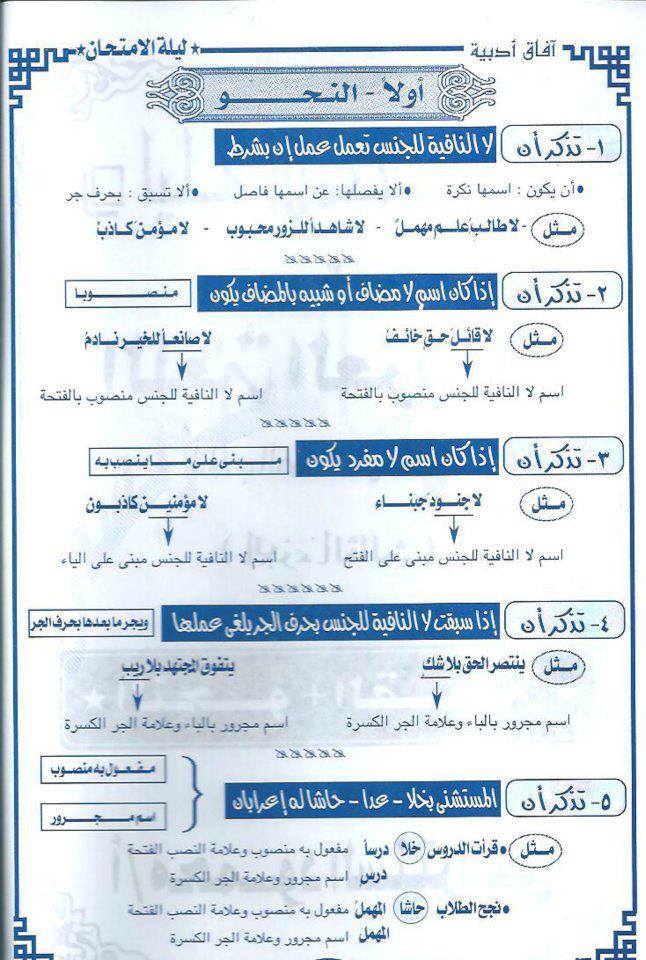 آفاق أدبية ★ليلة الامتحان★
أولاً - النحـــو
١- تذكر أن لا النافية للجنس تعمل عمل إن بشرط
•أن يكون : اسمها نكرة •ألا يفصلها: عن اسمها فاصل •ألا تسبق : بحرف جر
مثل - لا طالبَ علم مهملٌ - لا شاهداً للزور محبوب - لا مؤمنَ كاذبٌ
٢- تذكر أن إذا كان اسم لا مضاف أو شبيه بالمضاف يكون منصوبا
مثل لا قائلَ حقٍ خائفٌ لا صانعاً للخير نادمٌ
اسم لا النافية للجنس منصوب بالفتحة اسم لا النافية للجنس منصوب بالفتحة
٣- تذكر أن إذا كان اسم لا مفرد يكون مبنى على ما ينصب به
مثل لا جنودَ جبناء لا مؤمنين كاذبون
اسم لا النافية للجنس مبنى على الفتح اسم لا النافية للجنس مبنى على الياء
٤- تذكر أن إذا سبقت لا النافية للجنس بحرف الجر يلغى عملها ويجر ما بعدها بحرف الجر
مثل ينتصر الحق بلا شك يتفوق المجتهد بلا ريب
اسم مجرور بالباء وعلامة الجر الكسرة اسم مجرور بالباء وعلامة الجر الكسرة
٥- تذكر أن المستشنى بخلا - عدا - حاشا له إعرابان
مفعول به منصوب
اسم مجرور
مثل •قرأت الدروس خلا درساً مفعول به منصوب وعلامة النصب الفتحة
درس اسم مجرور وعلامة الجر الكسرة
•نجح الطلاب حاشا المهملَ مفعول به منصوب وعلامة النصب الفتحة
المهمل اسم مجرور وعلامة الجر الكسرة